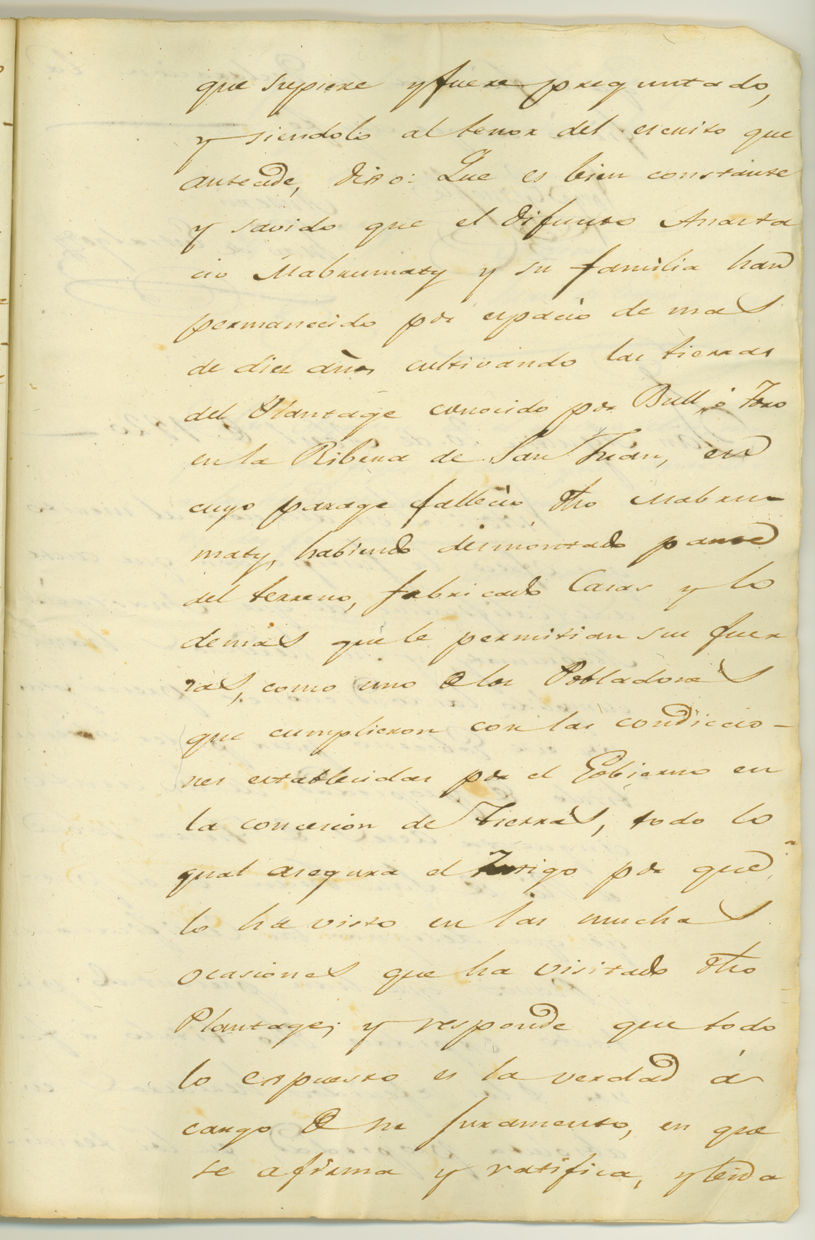 que supiere y fuere preguntado,
y siendolo al tenor del escrito que
antecede, dixo: Que es bien constante
y savido que el difunto Anasta
cio Mabrumaty y su familia han
permanecido por espacio de mas
de diez años cultivando las tierras
del Plantage conocido por Bull, ó Toro
en la Ribera de San Juan, en
cuyo parage fallecio dho Mabru-
maty, habiendo desmontado parte
del terreno, fabricado Casas y lo
demas que le permitian sus fuer
zas, como uno de los Pobladores
que cumplieron con las condiccio-
nes establecidas por el Gobierno en
la concesion de Tierras, todo lo
qual asegura el Testigo por que
lo ha visto en las muchas
ocasiones que ha visitado dho
Plantage; y responde que todo
lo expuesto es la verdad á
cargo de su juramento, en que
se afirma y ratifica, y leida